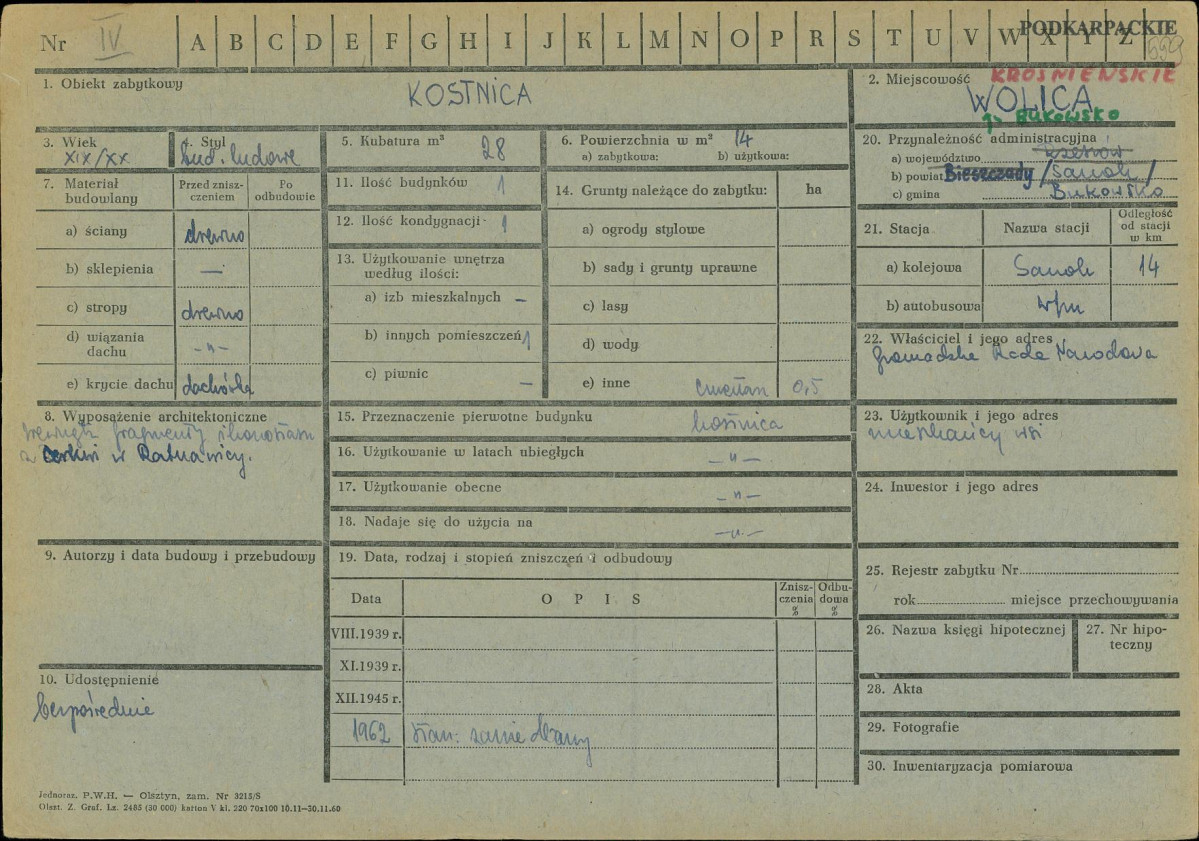 Nr IV A B C D E F G H I J K L M N O P R S T U V W X Y Z
PODKARPACKIE
1. Obiekt zabytkowy
KOSTNICA
2. Miejscowość
KROŚNIEŃSKIE
WOLICA
BUKOWSKO
3. Wiek
XIX/XX
4. Styl
bud. ludowe
5. Kubatura m³
28
6. Powierzchnia w m²
14
a) zabytkowa: b) użytkowa:
7. Materiał budowlany
Przed zniszczeniem
Po odbudowie
a) ściany drewno
b) sklepienia —
c) stropy drewno
d) wiązania dachu -"-
e) krycie dachu dachówka
8. Wyposażenie architektoniczne
wewnątrz fragmenty ikonostasu
z cerkwi w Ratnawicy.
9. Autorzy i data budowy i przebudowy
10. Udostępnienie
bezpośrednie
11. Ilość budynków 1
12. Ilość kondygnacji 1
13. Użytkowanie wnętrza
według ilości:
a) izb mieszkalnych —
b) innych pomieszczeń 1
c) piwnic —
14. Grunty należące do zabytku: ha
a) ogrody stylowe
b) sady i grunty uprawne
c) lasy
d) wody
e) inne cmentarz 0,5
15. Przeznaczenie pierwotne budynku kostnica
16. Użytkowanie w latach ubiegłych -"-
17. Użytkowanie obecne -"-
18. Nadaje się do użycia na -"-
19. Data, rodzaj i stopień zniszczeń i odbudowy
Data O P I S Zniszczenia % Odbudowa %
VIII.1939 r.
XI.1939 r.
XII.1945 r.
1962 stan: zaniedbany
20. Przynależność administracyjna
a) województwo Rzeszów
b) powiat Bieszczady /Sanok/
c) gmina Bukowsko
21. Stacja Nazwa stacji Odległość od stacji w km
a) kolejowa Sanok 14
b) autobusowa
22. Właściciel i jego adres
Gromadzka Rada Narodowa
23. Użytkownik i jego adres
mieszkańcy wsi
24. Inwestor i jego adres
25. Rejestr zabytku Nr
rok miejsce przechowywania
26. Nazwa księgi hipotecznej
27. Nr hipoteczny
28. Akta
29. Fotografie
30. Inwentaryzacja pomiarowa
Jednoraz. P.W.H. — Olsztyn, zam. Nr 3215/S
Olszt. Z. Graf. Lz. 2485 (30 000) karton V kl. 220 70x100 10.11—30.11.60